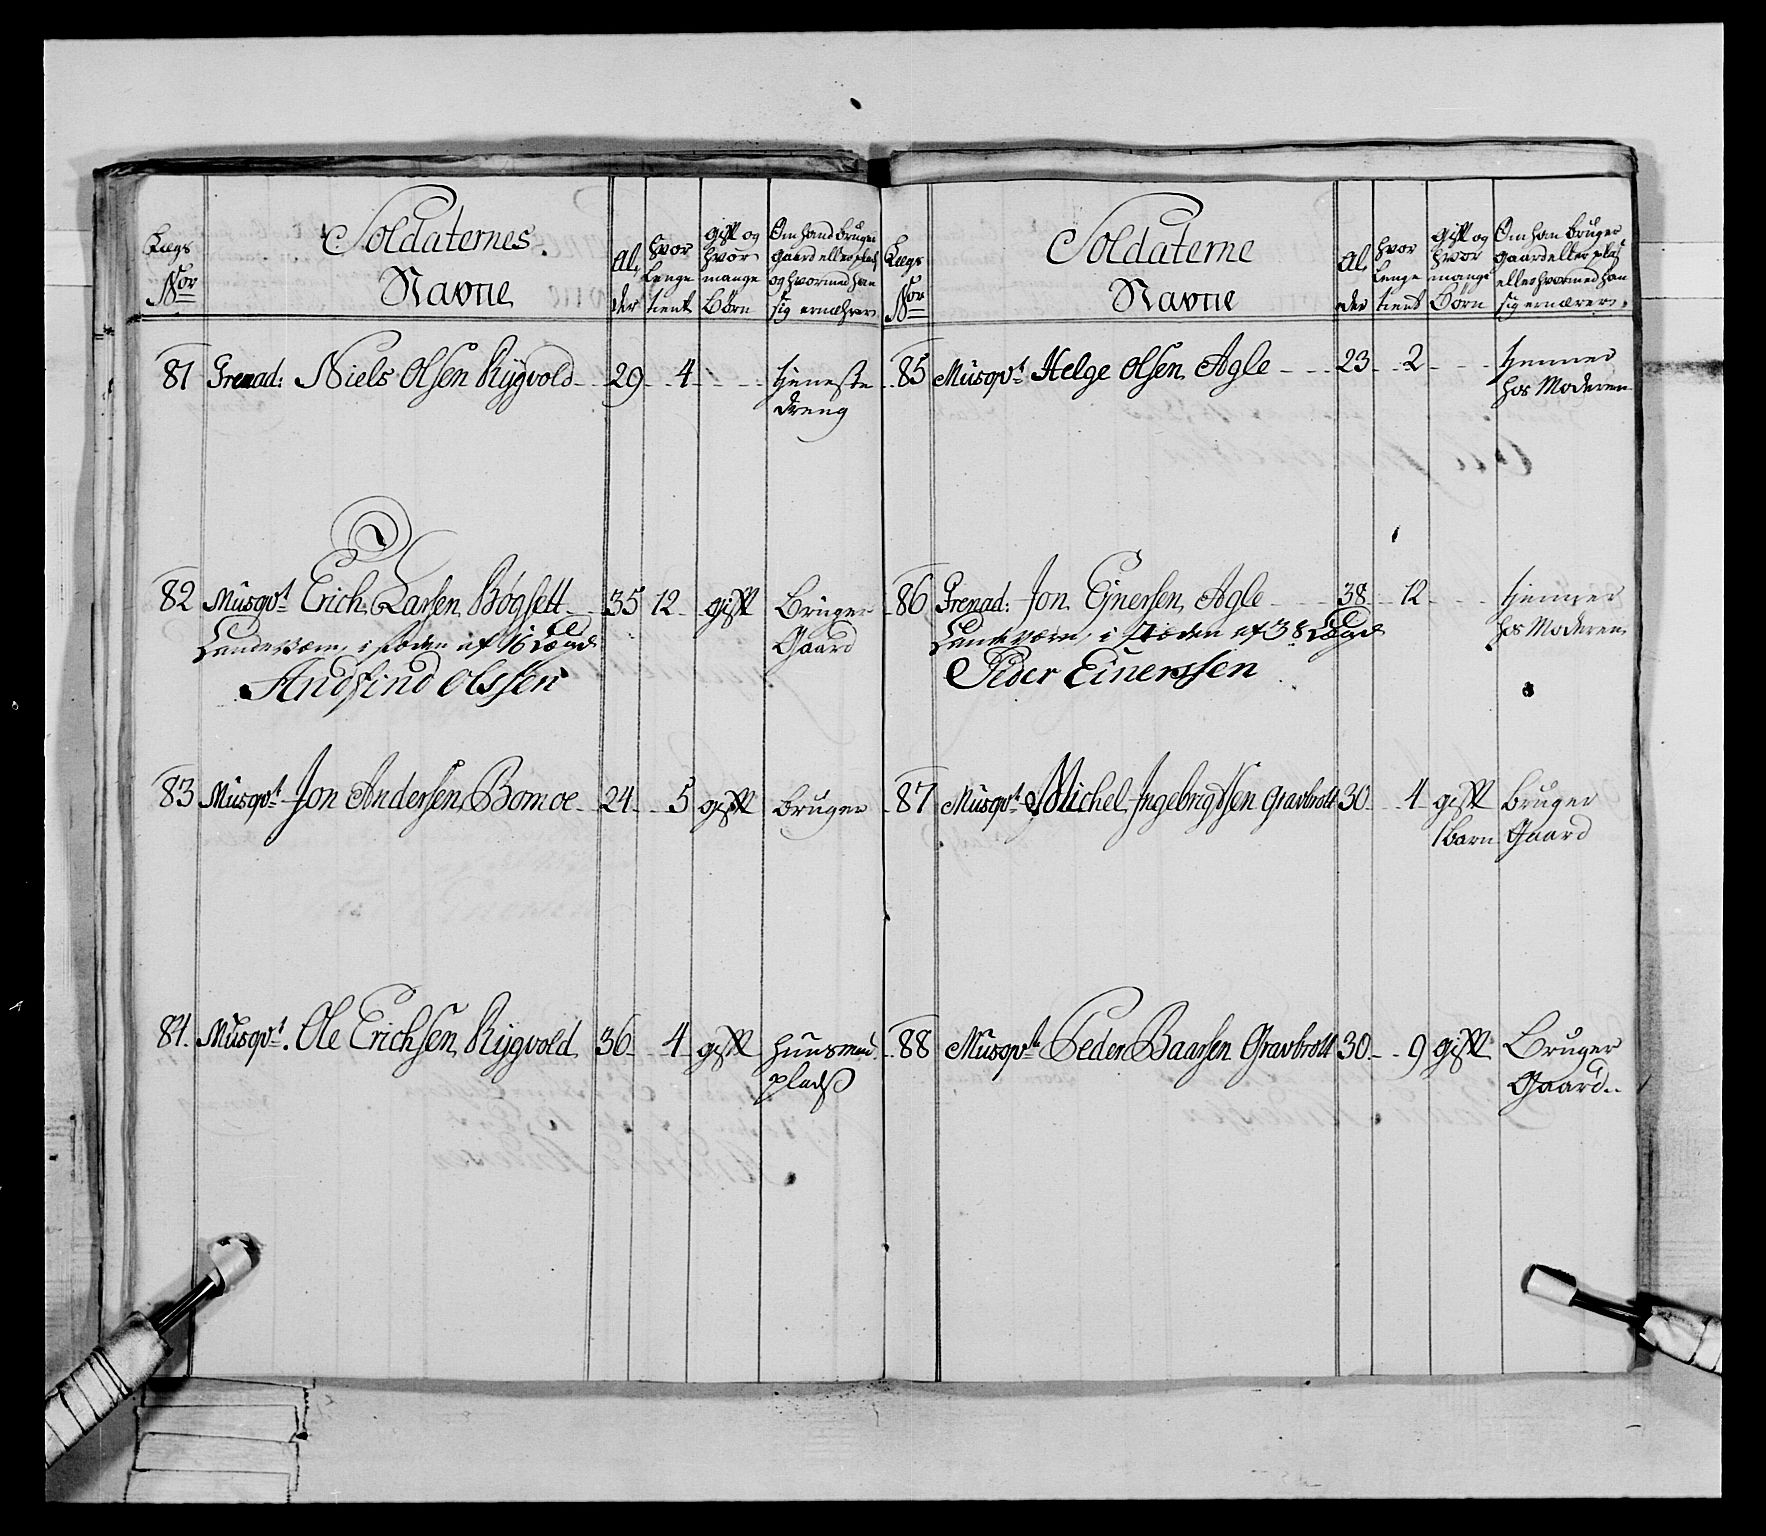 Lægs No.r
Soldaternes Navne
Al, der
hvor Lenge tient
gift og hvor mange Børn
Om hand bruger gaard eller plads og hvormed han sig ernæhrer
81 Grenad: Niels Olsen Rygvold 29 4 tjeneste
dreng
82 Musqvt Erich Larsen Bøgsett 35 12 gift Bruger
Landeværn, i stæden af 16 Lægd Gaard
Andfind Olssen
83 Musqvt Jon Andersen Bomoe 24 5 gift bruger
84. Musqvt. Ole Erichsen Rygvold 36 4 gift huusmd.
pladß
Lægs No.r
Soldaterne Navne
Al, der
hvor Lenge tient
gift og hvor mange Børn
Om han bruger gaard eller plads eller hvormed han sig ernærer
85 Musqvt Helge Olsen Agle 23 2 tienner
hos Moderen
86 Grenad: Jon Ejnersen Agle 38 12 tienner
Landeværn, i stæden af 38 Lægd hos Moderen
Peder Einerssen
87 Musqvt Michel Ingebrigtsen Gravbrott 30 4 gift bruger
1 barn Gaard
88 Musqvt Peder Baarsen Gravbrott 30 9 gift Bruger
Gaard